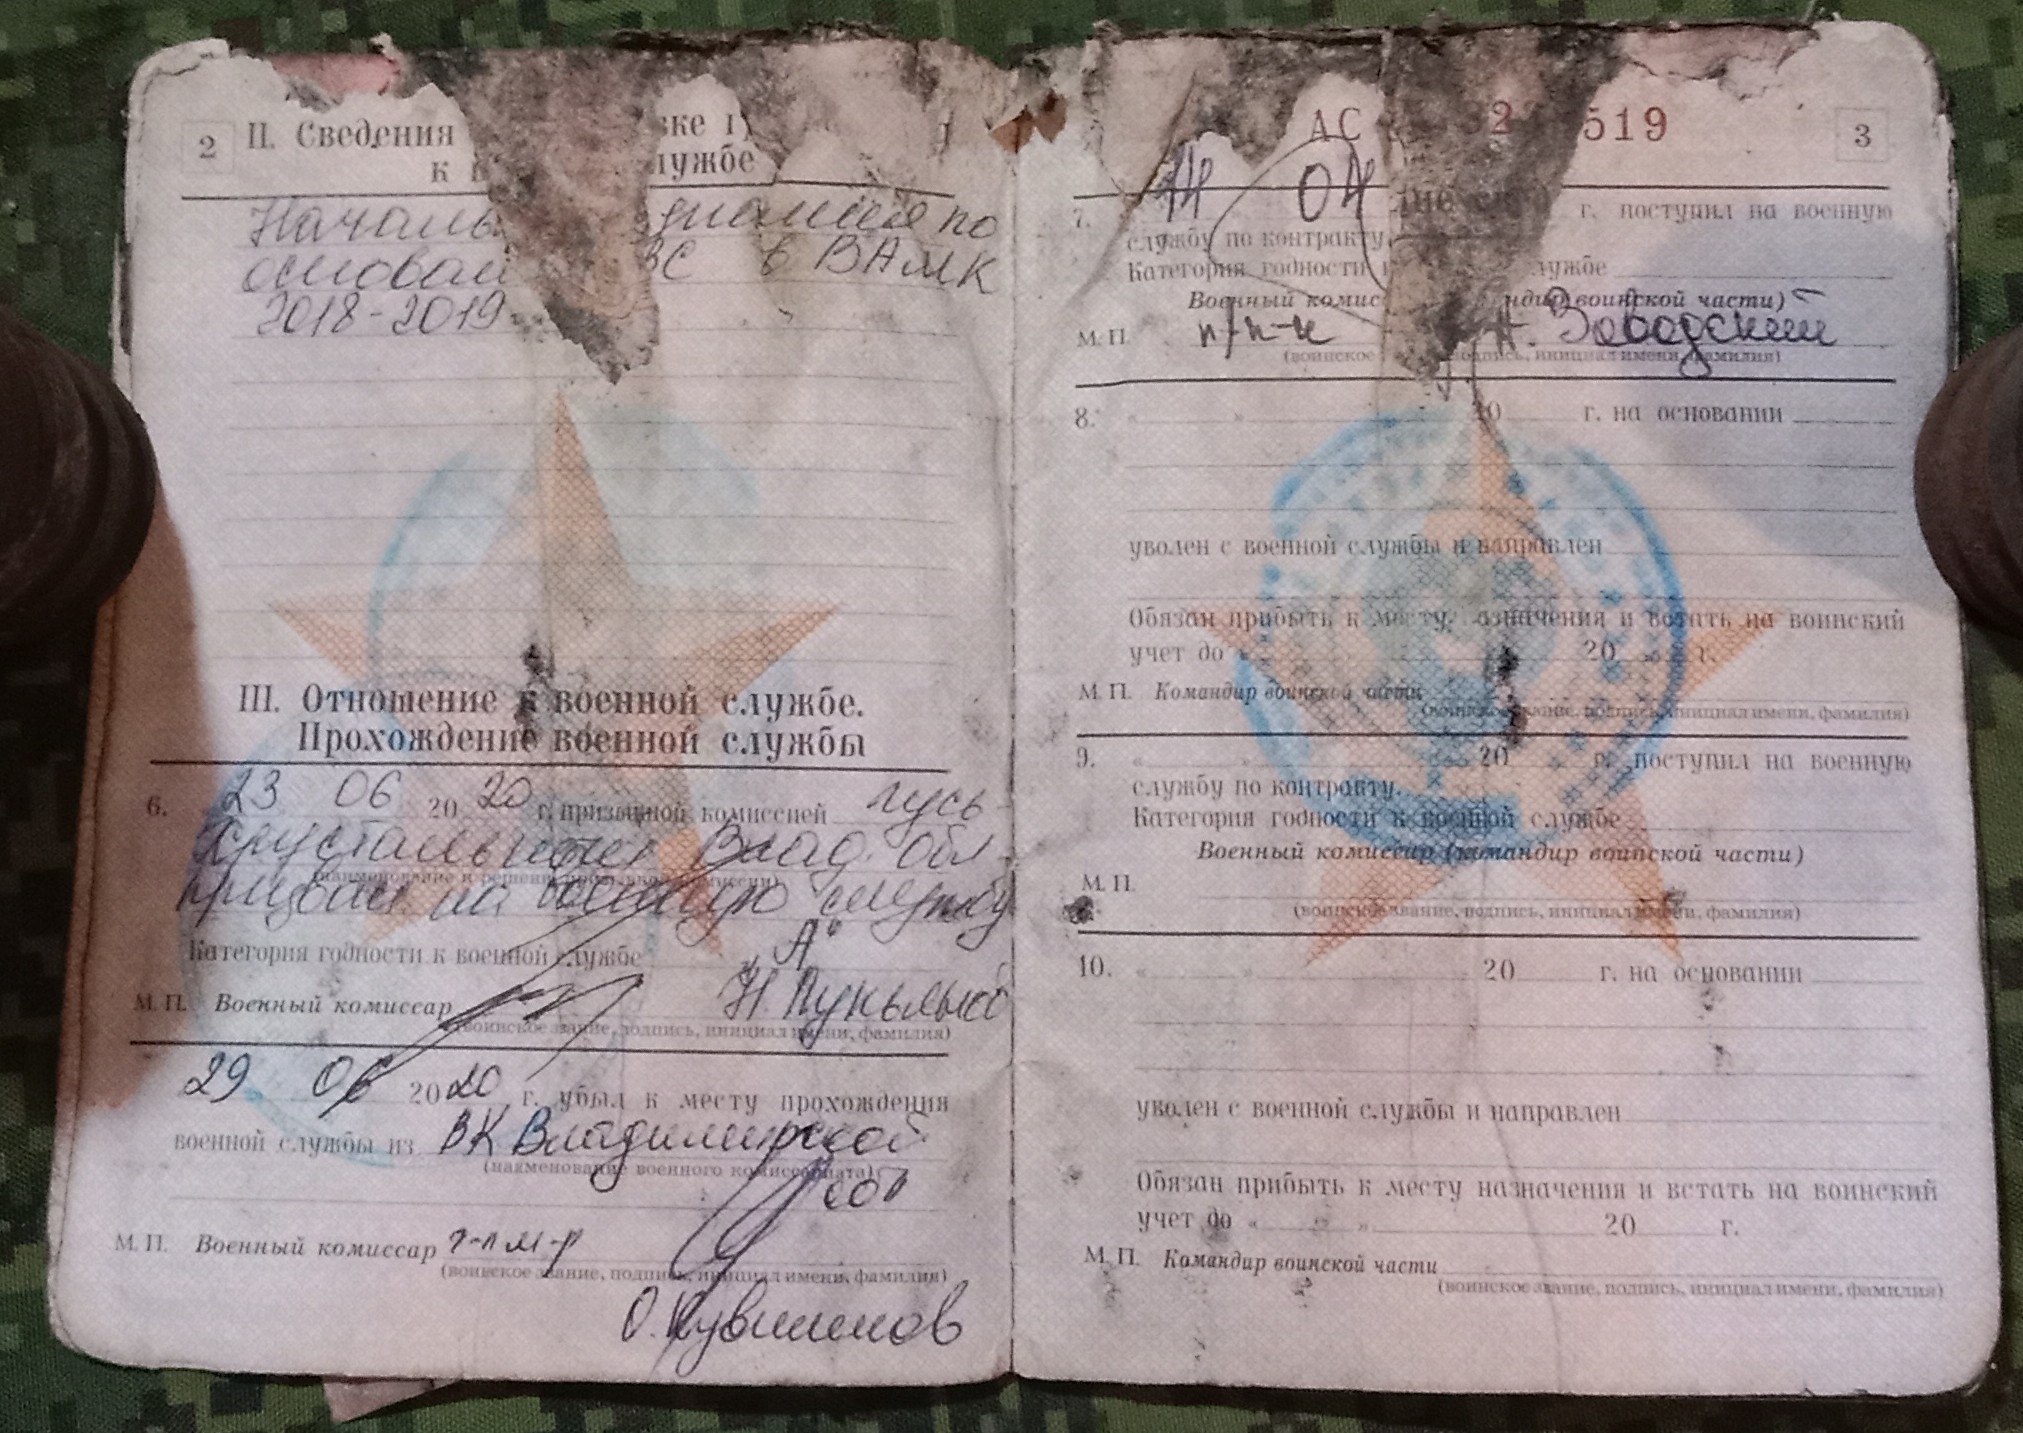 2
II. Сведения вке
к службе
по
в ВАМК
2018-2019
III. Отношение к военной службе.
Прохождение военной службы
6. 23 06 20 20 г. призывной комиссией Гусь-
Влад. обл
(наименование и решение призывной комиссии)
призван на военную службу
Категория годности к военной службе „А“
М. П. Военный комиссар Н.
(воинское звание, подпись, инициал имени, фамилия)
29 06 20 20 г. убыл к месту прохождения
военной службы из ВК Владимирской
(наименование военного комиссариата)
обл
М. П. Военный комиссар г-л м-р
(воинское звание, подпись, инициал имени, фамилия)
О. Кувшинов
АС 519
3
7. г. поступил на военную
службу по контракту.
Категория годности к службе
Военный комиссар (командир воинской части)
М. П. п/п-к Заводский
(воинское подпись, инициал имени, фамилия)
8. « » 20 г. на основании
уволен с военной службы и направлен
Обязан прибыть к месту азначения и встать на воинский
учет до « 20 г.
М. П. Командир воинской части
(воинское звание, подпись, инициал имени, фамилия)
9. « » 20 г. поступил на военную
службу по контракту.
Категория годности к военной службе
Военный комиссар (командир воинской части)
М. П.
(воинское звание, подпись, инициал имени, фамилия)
10. « » 20 г. на основании
уволен с военной службы и направлен
Обязан прибыть к месту назначения и встать на воинский
учет до « » 20 г.
М. П. Командир воинской части
(воинское звание, подпись, инициал имени, фамилия)